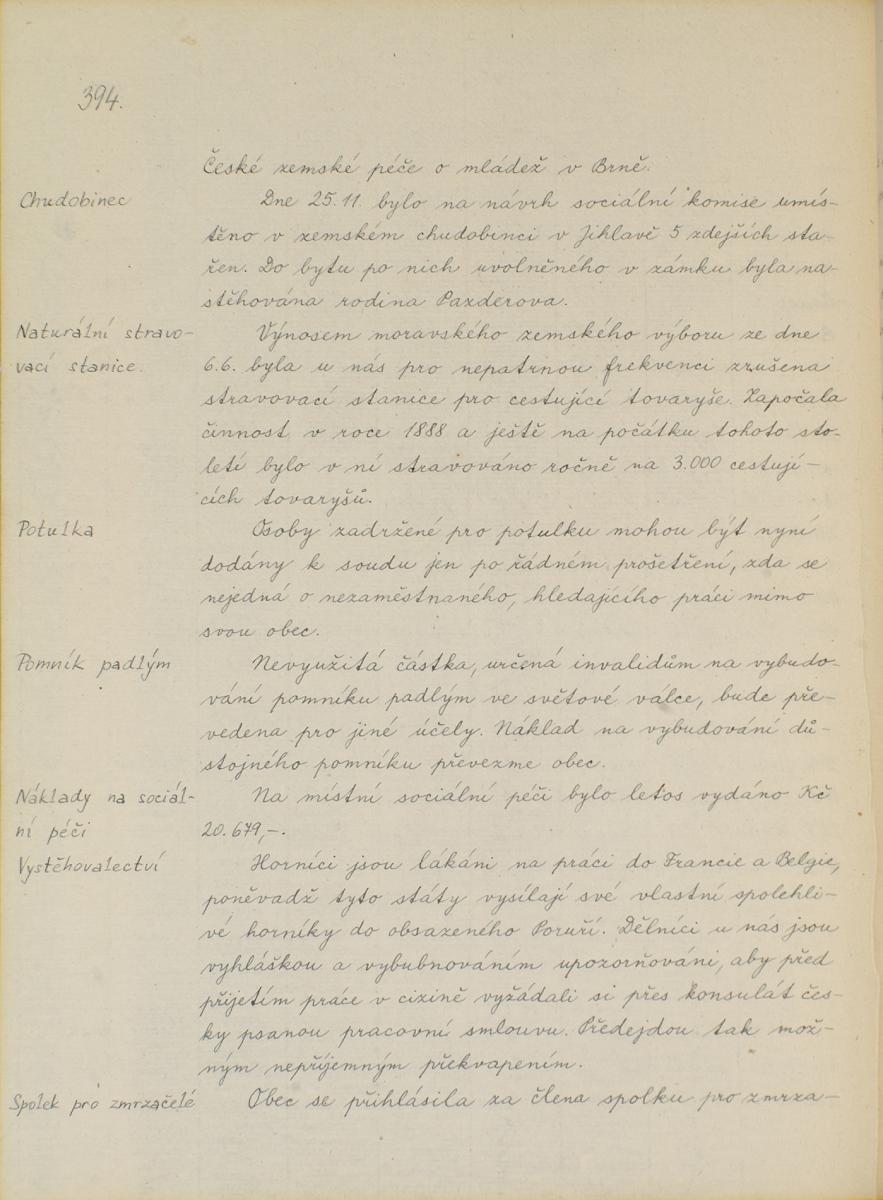 394.
České zemské péče o mládež v Brně.
Chudobinec
Dne 25.11. bylo na návrh sociální komise umís-
těno v zemském chudobinci v Jihlavě 5 zdejších sta-
řen. Do bytu po nich uvolněného v zámku byla na-
stěhována rodina Pazderova.
Naturální stravo-
vací stanice.
Výnosem moravského zemského výboru ze dne
6.6. byla u nás pro nepatrnou frekvenci zrušena
stravovací stanice pro cestující tovaryše. Započala
činnost v roce 1888 a ještě na počátku tohoto sto-
letí bylo v ní stravováno ročně na 3.000 cestují-
cích tovaryšů.
Potulka
Osoby zadržené pro potulku mohou být nyní
dodány k soudu jen po řádném prošetření, zda se
nejedná o nezaměstnaného, hledajícího práci mimo
svou obec.
Pomník padlým
Nevyužitá částka, určená invalidům na vybudo-
vání pomníku padlým ve světové válce, bude pře-
vedena pro jiné účely. Náklad na vybudování dů-
stojného pomníku převezme obec.
Náklady na sociál-
ní péči
Na místní sociální péči bylo letos vydáno Kč
20.679,-.
Vystěhovalectví
Horníci jsou lákáni na práci do Francie a Belgie,
poněvadž tyto státy vysílají své vlastní spolehli-
vé horníky do obsazeného Poruří. Dělníci u nás jsou
vyhláškou a vybubnováním upozorňováni, aby před
přijetím práce v cizině vyžádali si přes konsulát čes-
ky psanou pracovní smlouvu. Předejdou tak mož-
ným nepříjemným překvapením.
Spolek pro zmrzačelé
Obec se přihlásila za člena spolku pro zmrza-